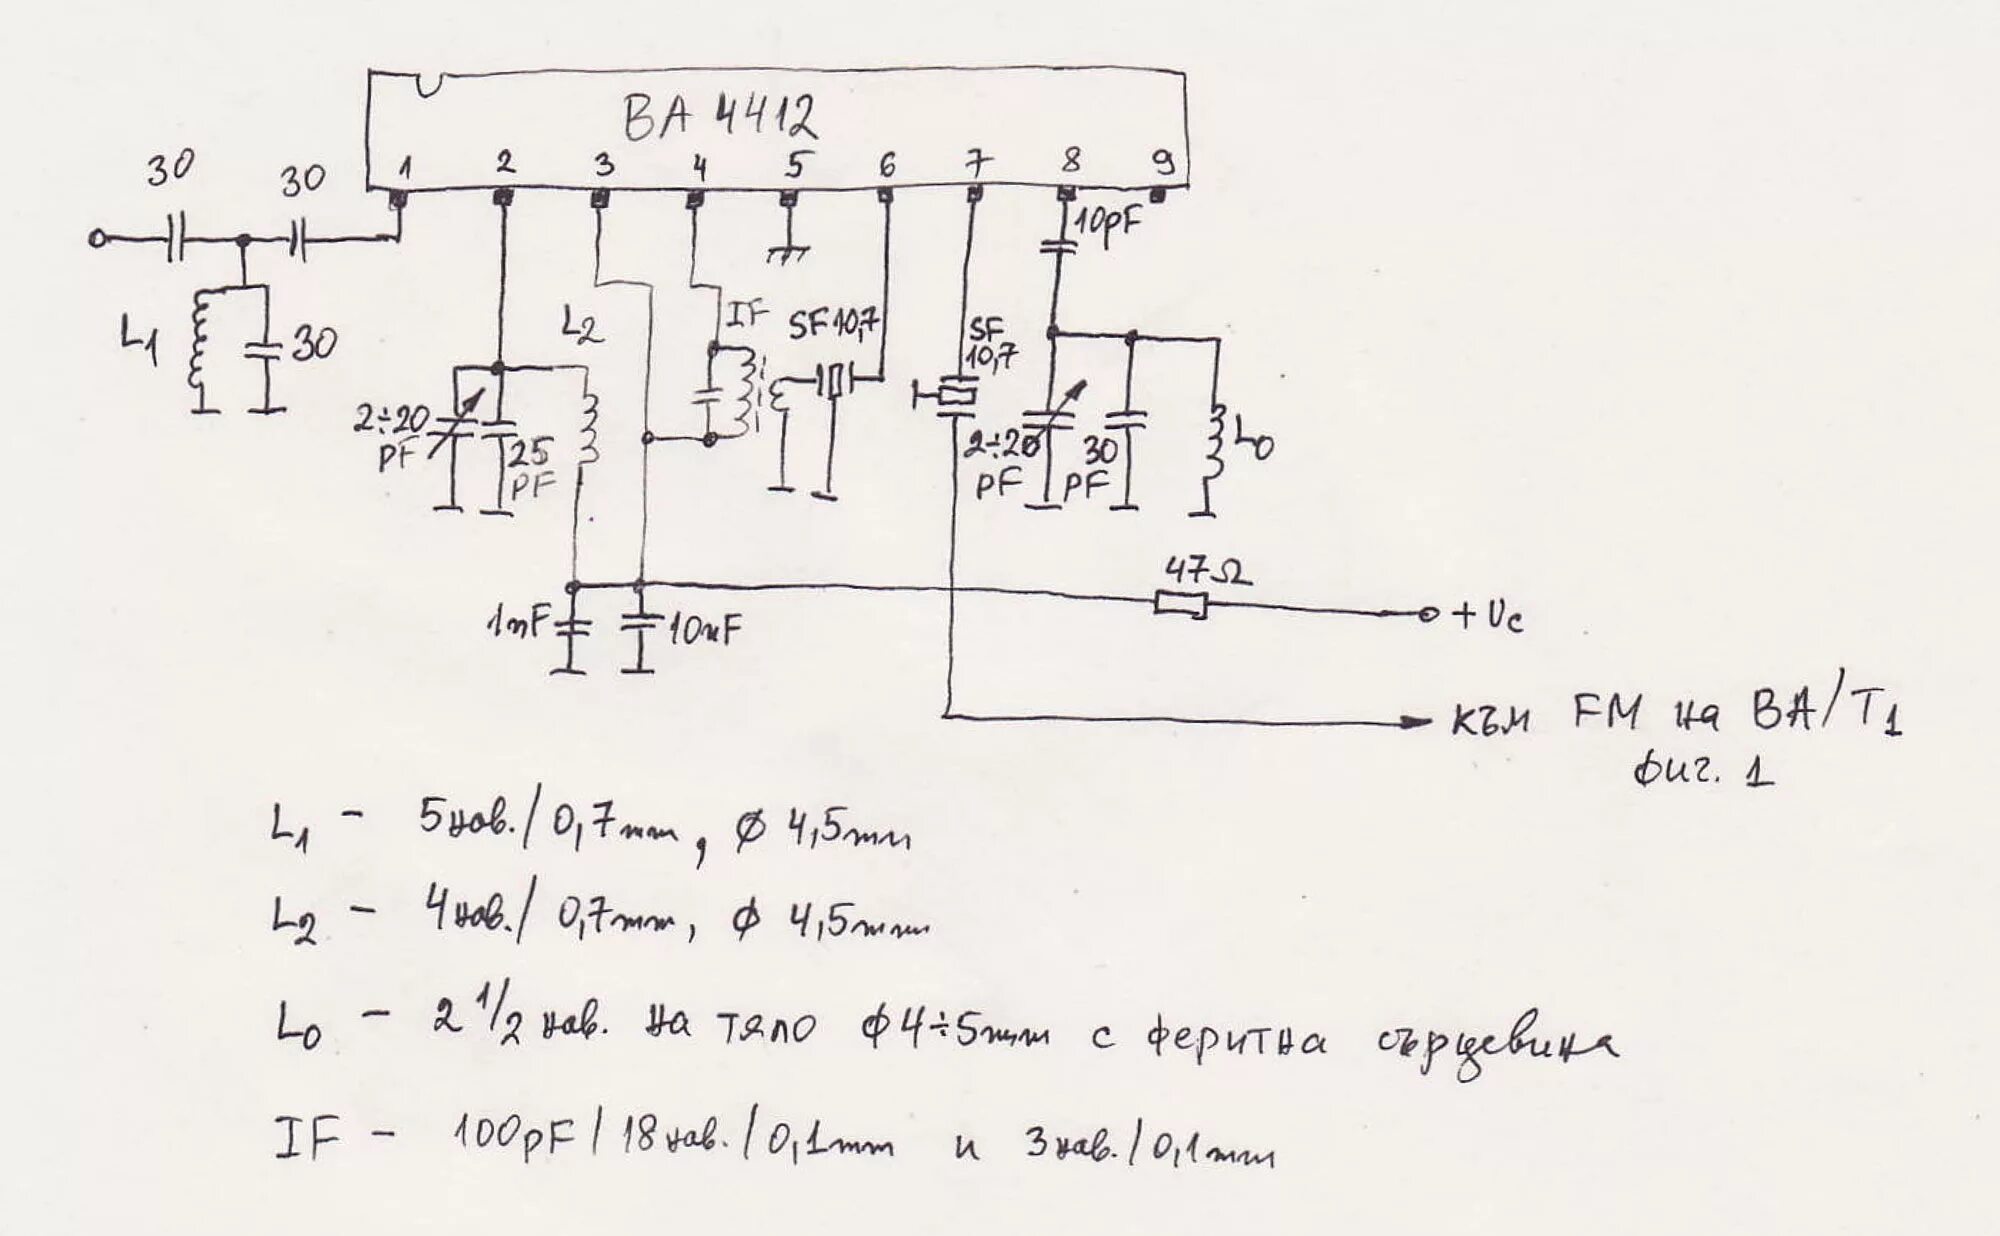 BA 4412
1 2 3 4 5 6 7 8 9
30
30
10pF
L1
30
L2
IF
SF 10,7
SF
10,7
2÷20
PF
25
PF
2÷20
PF
30
PF
L0
47Ω
1nF
10nF
+ Uc
към FM на BA/T1
фиг. 1
L1 - 5нав./0,7mm, ϕ 4,5mm
L2 - 4нав./0,7mm, ϕ 4,5mm
L0 - 2 1/2 нав. на тяло ϕ4÷5mm с феритна сърцевина
IF - 100pF/18нав./0,1mm и 3нав./0,1mm